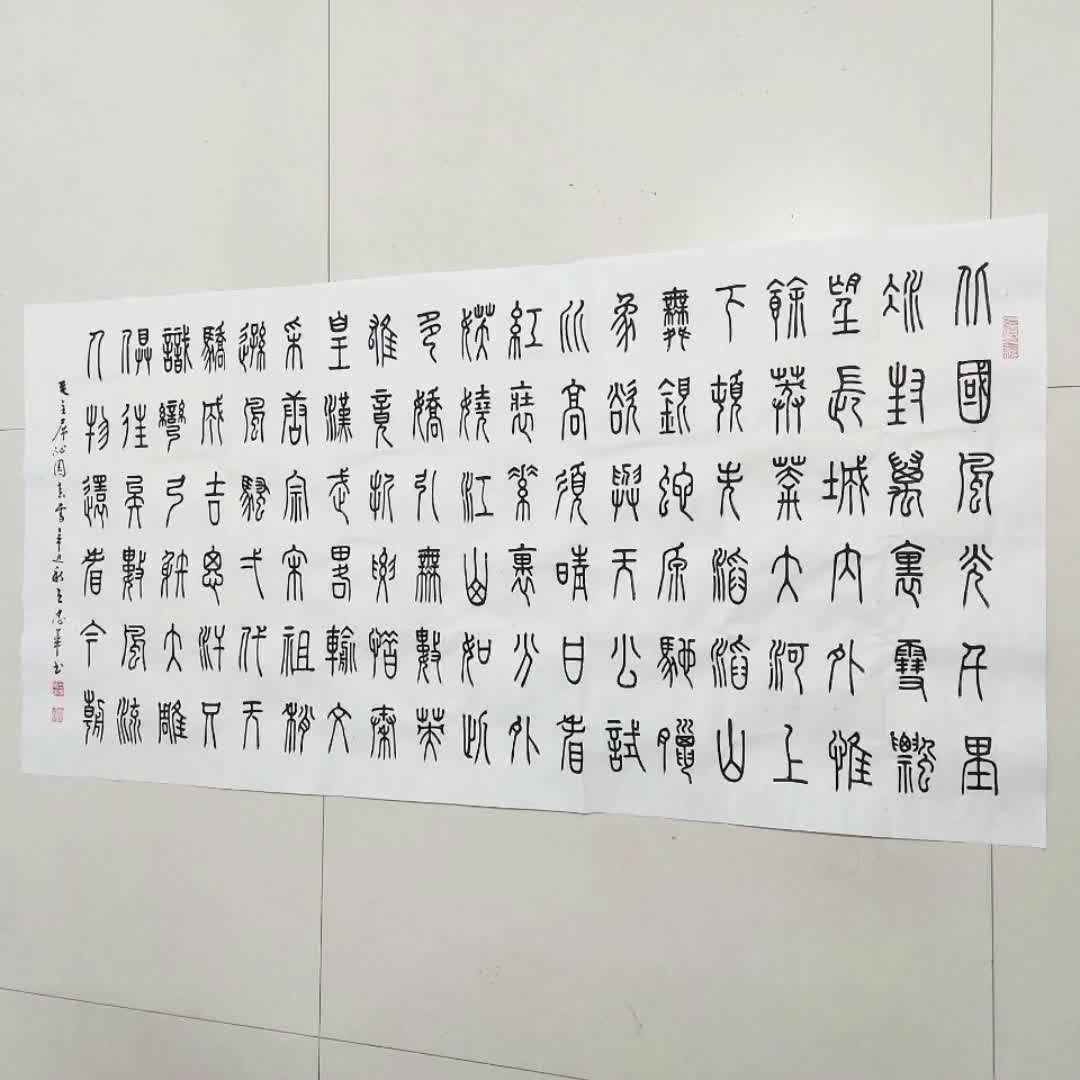 北國風光千里
冰封萬裏雪飄
望長城內外惟
餘莽莽大河上
下頓失滔滔山
舞銀蛇原馳臘
象欲與天公試
比高須晴日看
紅裝素裹分外
妖嬈江山如此
多嬌引無數英
雄竟折腰惜秦
皇漢武略輸文
采唐宗宋祖稍
遜風騷弌代天
驕成吉思汗只
識彎弓射大雕
俱往矣數風流
人物還看今朝
毛主席沁園春雪辛丑秋王忠華书